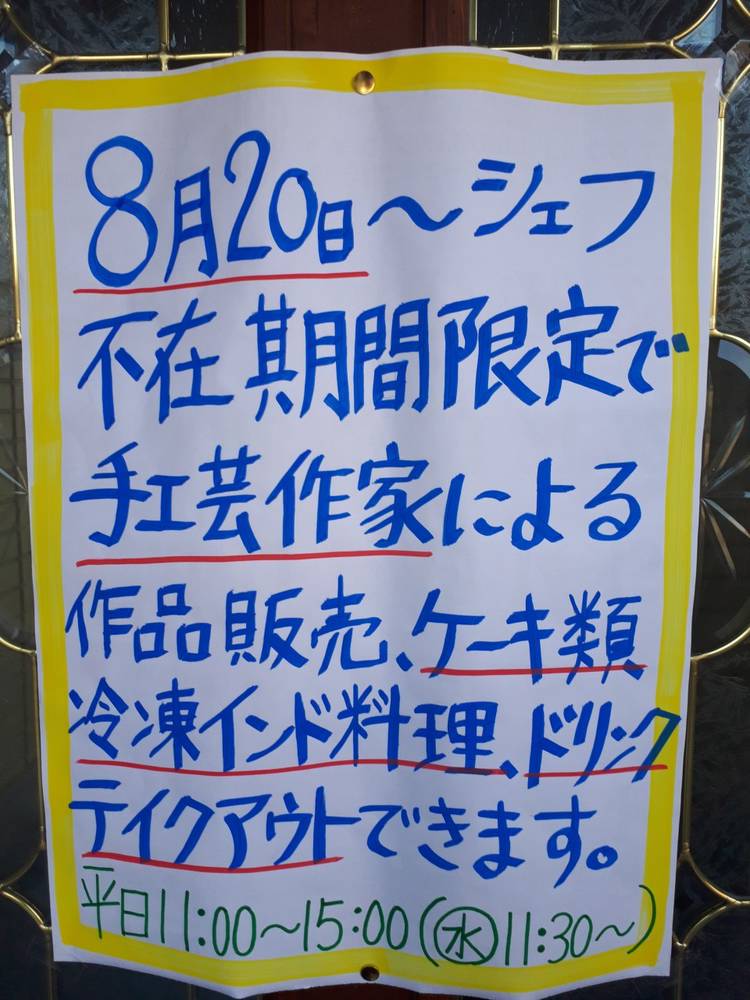 8月20日〜シェフ
不在期間限定で
手工芸作家による
作品販売、ケーキ類
冷凍インド料理、ドリンク
テイクアウトできます。
平日11:00〜15:00(㊌11:30〜)